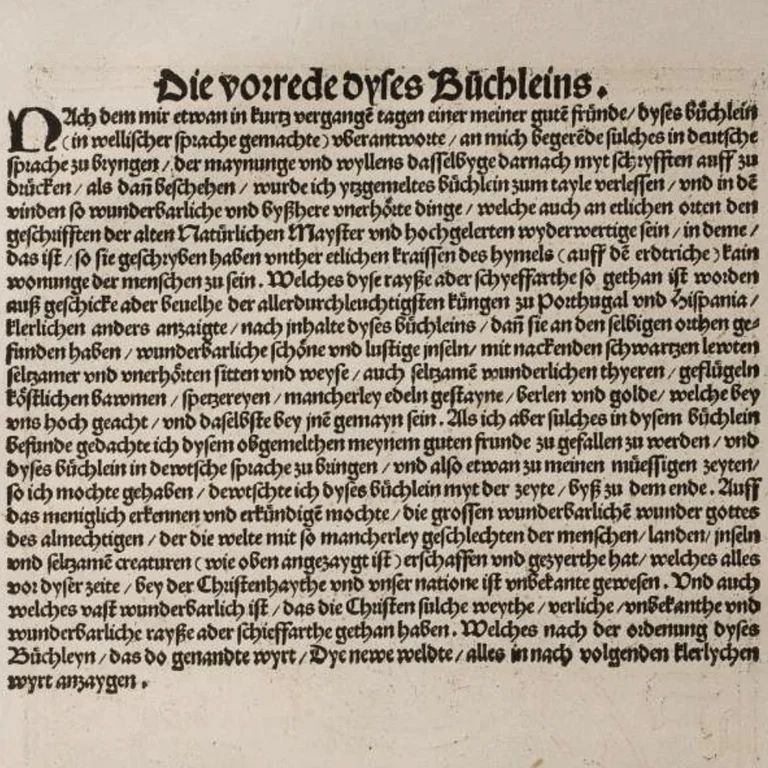 Die vorrede dyses Büchleins.
NAch dem mir etwan in kurtz vergangē tagen einer meiner gutē fründe/ dyses büchlein
(in wellischer sprache gemachte) vberantworte/ an mich begerēde sülches in deutsche
sprache zu bryngen/ der maynunge vnd wyllens dasselbyge darnach myt schryfften auff zu
drücken/ als dañ beschehen/ wurde ich ytzgemeltes büchlein zum tayle verlessen/ vnd in dē
vinden so wunderbarliche vnd byßhere vnerhörte dinge/ welche auch an etlichen orten den
geschrifften der alten Natürlichen Mayster vnd hochgelerten wyderwertige sein/ in deme/
das ist/ so sie geschryben haben vnther etlichen kraissen des hymels (auff dē erdtriche) kain
wonunge der menschen zu sein. Welches dyse rayße ader schyeffarthe so gethan ist worden
auß geschicke ader beuelhe der allerdurchleuchtigsten küngen zu Porthugal vnd Hispania/
klerlichen anders anzaigte/ nach jnhalte dyses büchleins/ dañ sie an den selbigen orthen ge-
funden haben/ wunderbarliche schöne vnd lustige jnseln/ mit nackenden schwartzen lewten
seltzamer vnd vnerhörten sitten vnd weyse/ auch seltzamē wunderlichen thyeren/ geflügeln
köstlichen bawmen/ spetzereyen/ mancherley edeln gestayne/ berlen vnd golde/ welche bey
vns hoch geacht/ vnd daselbste bey jnē gemayn sein. Als ich aber sülches in dysem büchlein
befunde gedachte ich dysem obgemelthen meynem guten frunde zu gefallen zu werden/ vnd
dyses büchlein in dewtsche sprache zu bringen/ vnd also etwan zu meinen müessigen zeyten/
so ich mochte gehaben/ dewtschte ich dyses büchlein myt der zeyte/ byß zu dem ende. Auff
das meniglich erkennen vnd erkündigen mochte/ die grossen wunderbarlichē wunder gottes
des almechtigen/ der die welte mit so mancherley geschlechten der menschen/ landen/ jnseln
vnd seltzamē creaturen (wie oben angezaygt ist) erschaffen vnd gezyerthe hat/ welches alles
vor dyser zeite/ bey der Christenhaythe vnd vnser natione ist vnbekante gewesen. Vnd auch
welches vast wunderbarlich ist/ das die Christen sülche weythe/ verliche/ vnbekanthe vnd
wunderbarliche rayße ader schieffarthe gethan haben. Welches nach der ordenung dyses
Büchleyn/ das do genandte wyrt/ Dye newe weldte/ alles in nach volgenden klerlychen
wyrt anzaygen.